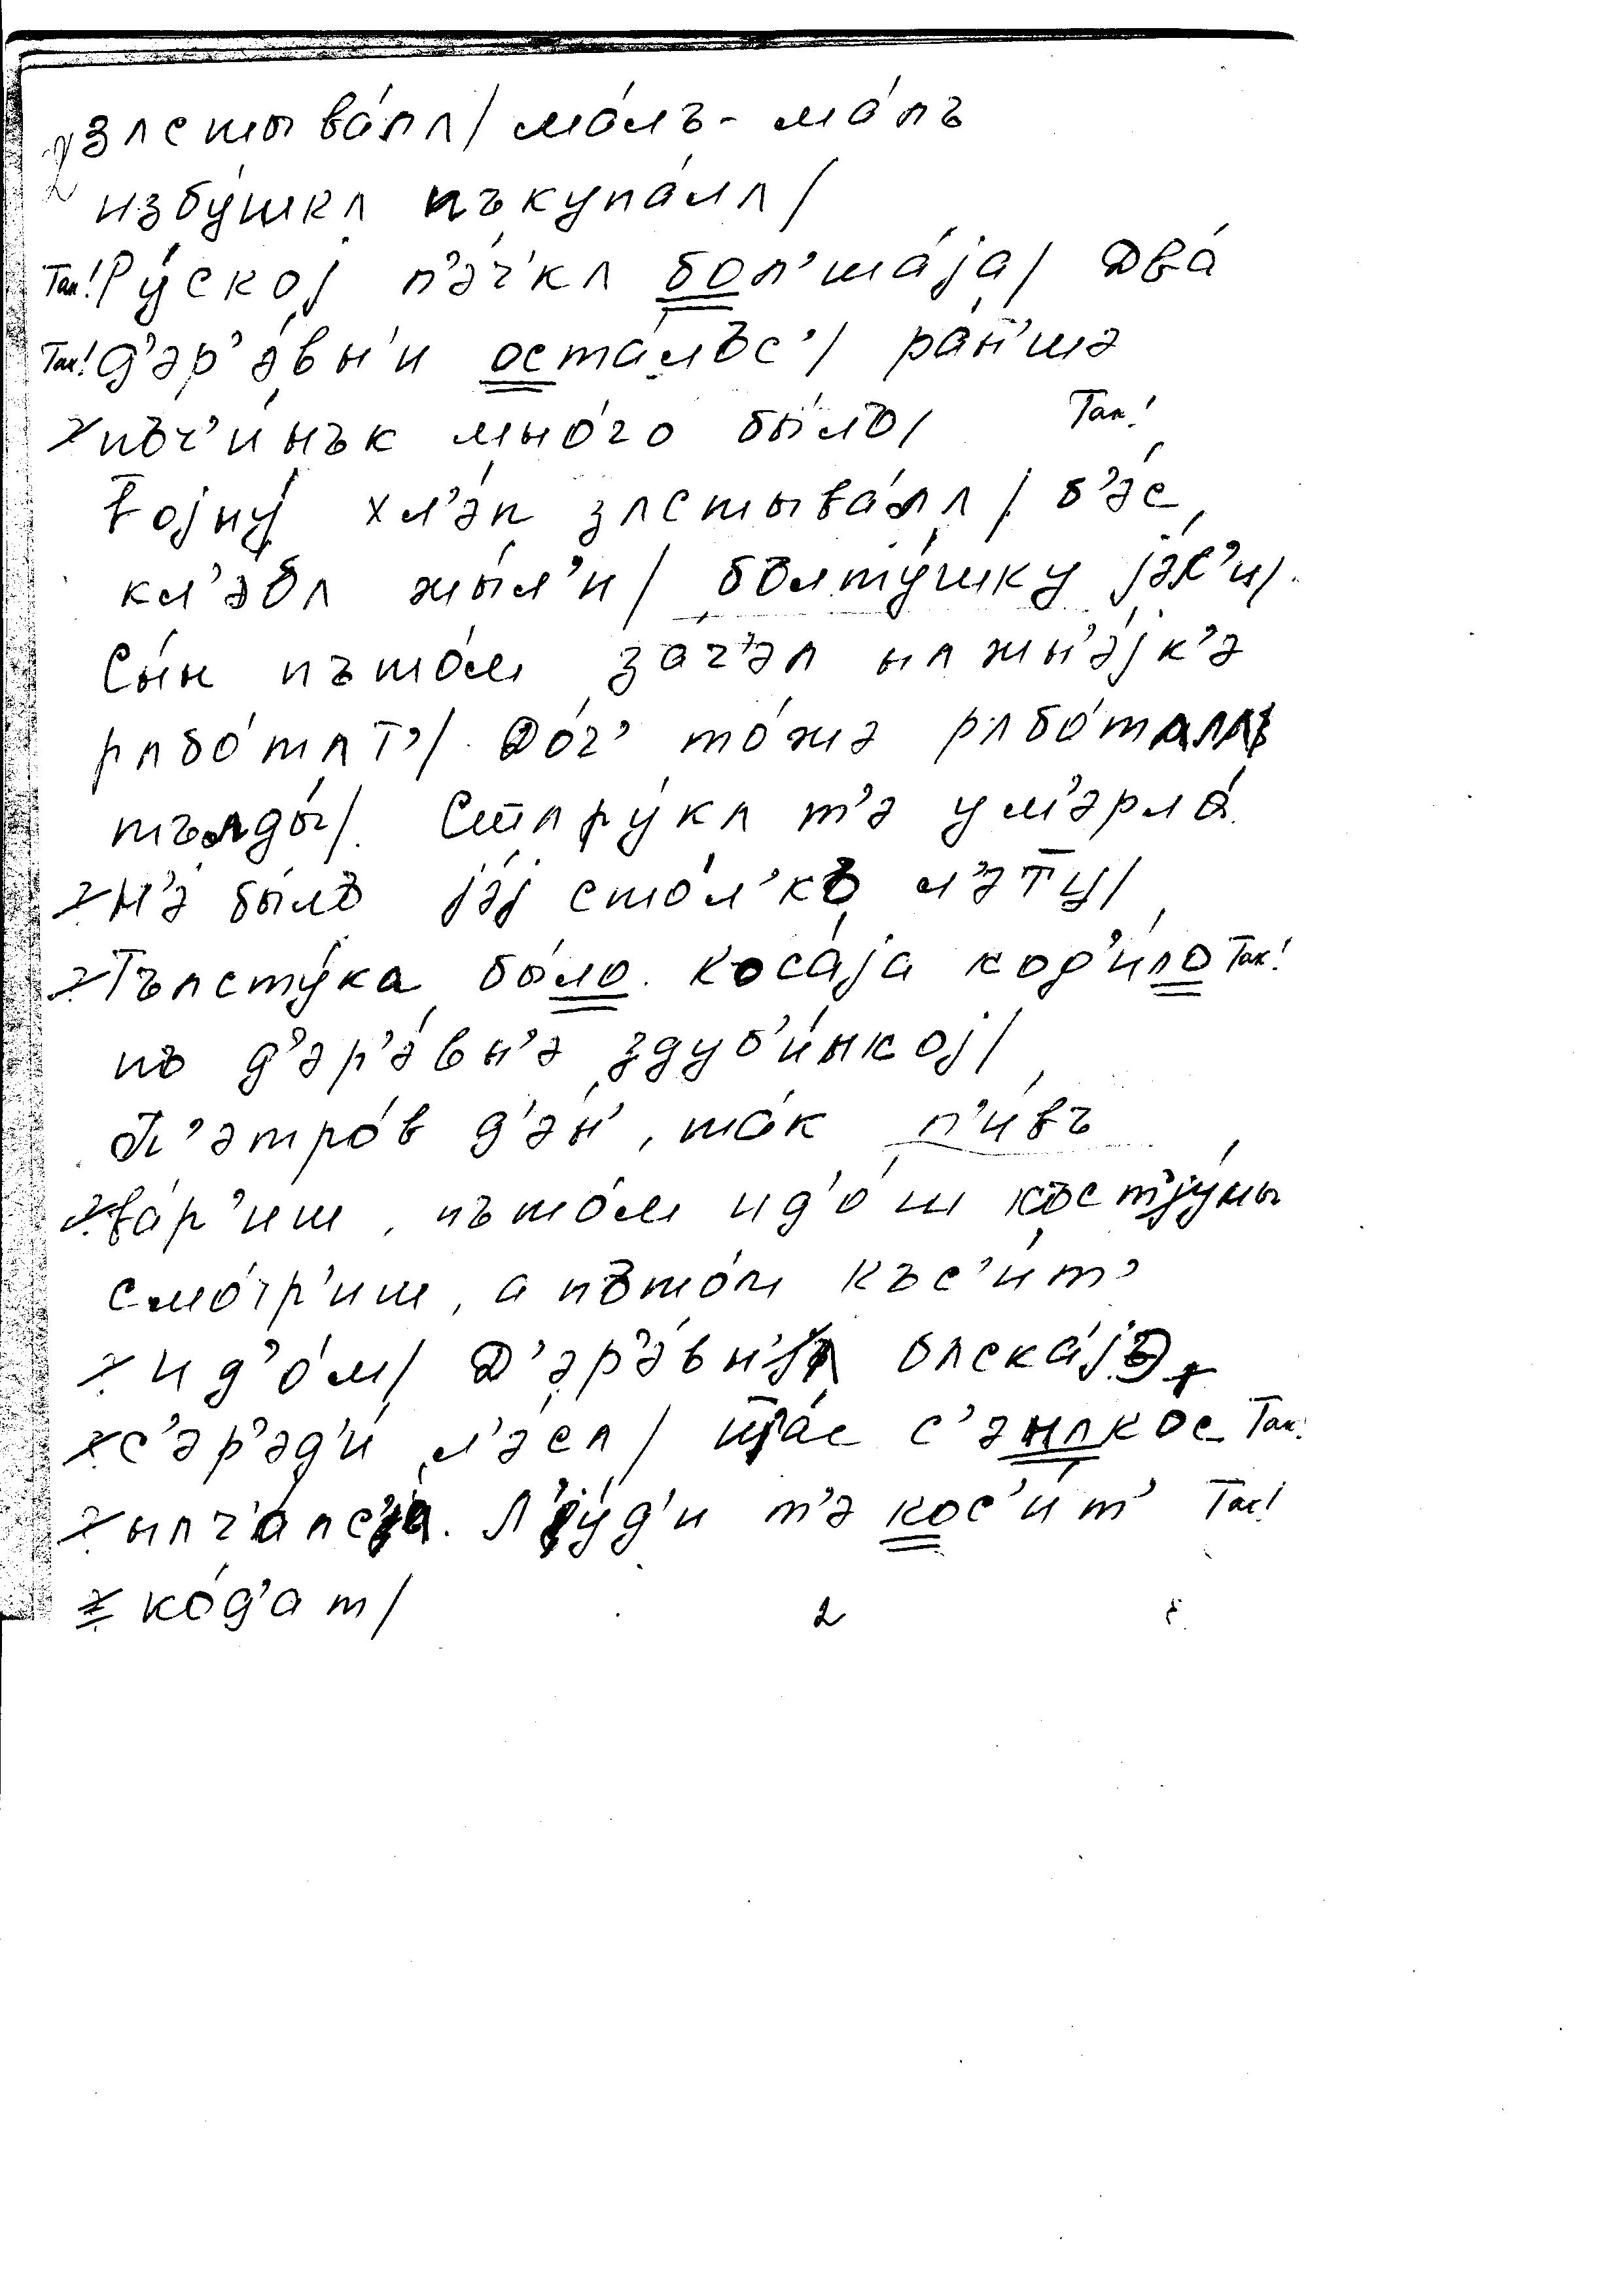 злстыва́лл/ ма́лъ- ма́лъ
избу́шкл пъкупа́лл/
Так! Ру́ској п’э́ч’кл бол’ша́jа/ Два́
Так! д’эр’э́вн’и оста́лъс’/ ра́н’шэ
пъч’и́нък мно́го бы́ло/ Так!
војну́ хл’э́п злстыва́лл/ б’э́с
кл’э́бл жы́л’и/ бълту́шку jэ́л’и/.
Сы́н пъто́м за́ч’эл нлжн’э́jк’э
рлбо́тлт’/. До́ч’ то́жэ рлбо́тллъ
тълды́/. Стлру́кл т’э ум’эрла́.
н’э́ было jэ́j сто́л’къ л’э́тц/
Тълсту́ка бы́ло. Коса́jа код’и́ло Так!
пъ д’эр’э́вн’э здуб’и́нкоj/
П’этро́в д’э́н’, та́к п’и́въ
ва́р’иш, пъто́м ид’о́ш костjу́мы
смо́тр’иш, а пъто́м къс’и́т’
ид’о́м/ Д’эр’э́вн’л блска́jъ
с’эр’эд’и́ л’э́сл/ щја́с с’энлко́с Так!
нлч’алс’а́. Л’у́д’и т’э кос’и́т’ Так!
ко́д’ат/
2